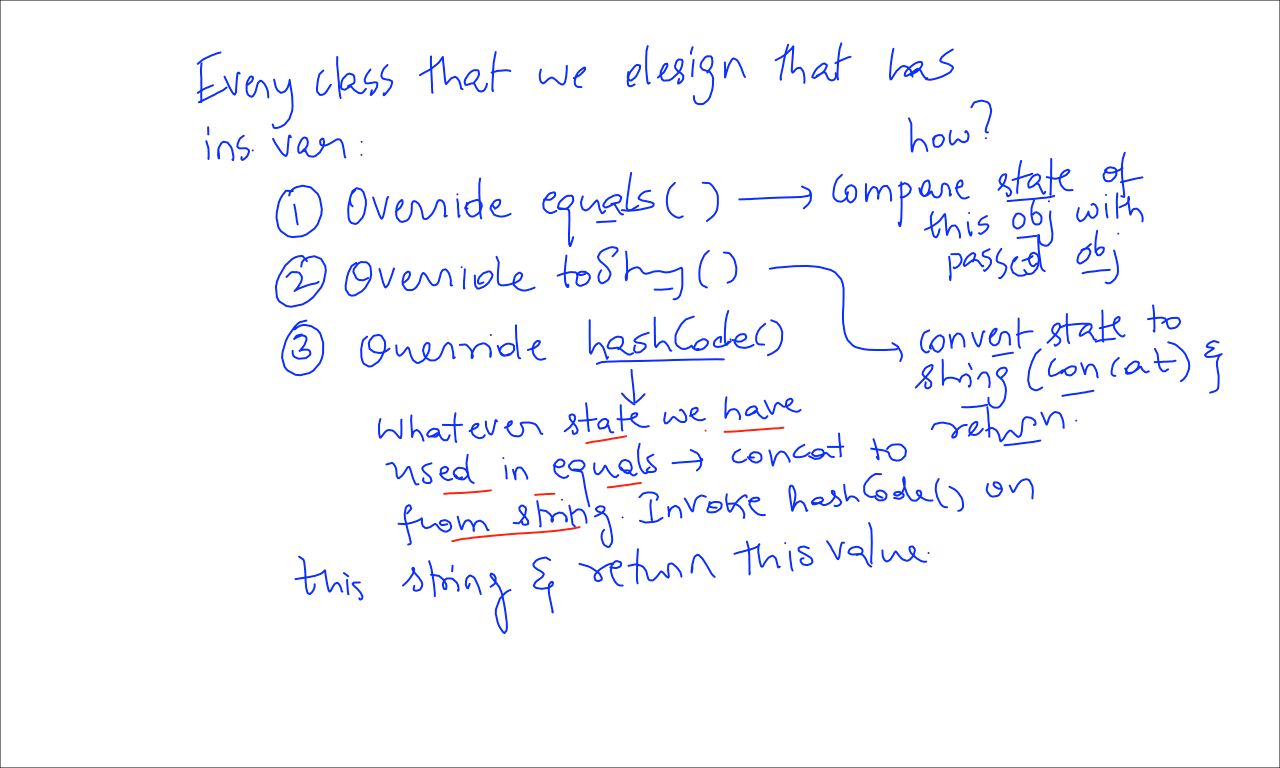 Every class that we design that has
ins. var:
how?
① Override equals() → Compare state of
this obj with
passed obj
② Override toString()
convert state to
string (concat) &
return.
③ Override hashCode()
↓
Whatever state we have
used in equals → concat to
from string. Invoke hashCode() on
this string & return this value.